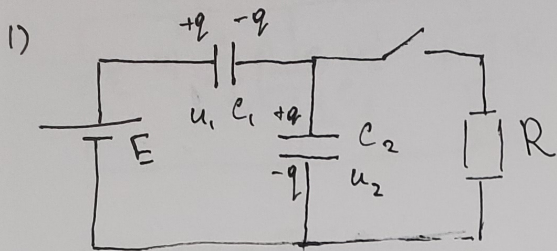 1)
+q -q
u₁ C₁
+q
C₂
E
-q
u₂
R